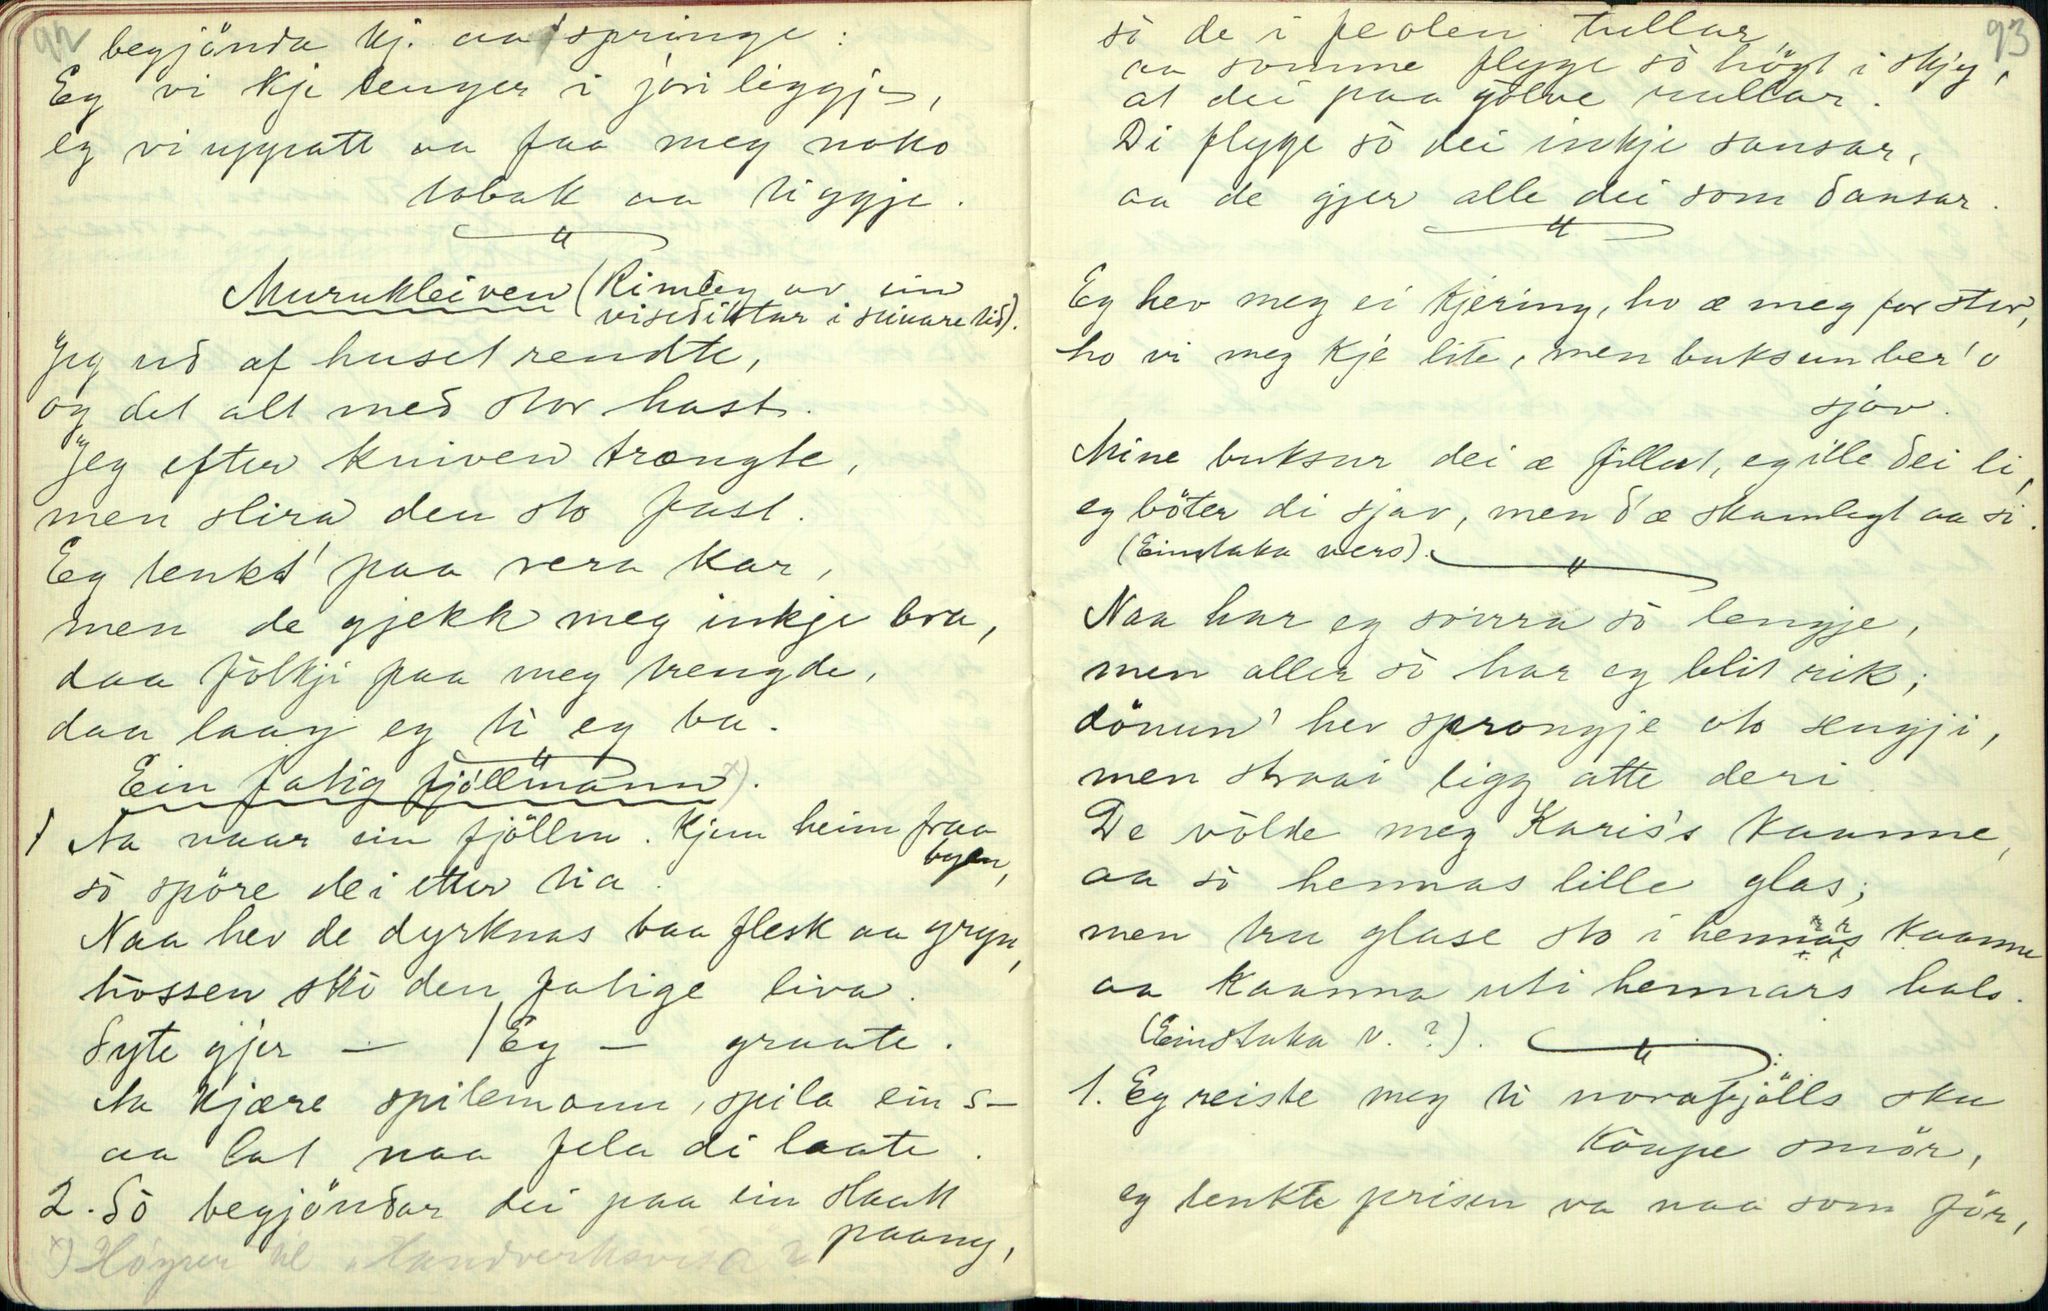 92
begjönda kj. aa springe:
Eg vi kje lenger i jöri liggje,
eg vi uppatt aa faa meg noko
tobak aa tiggje.
"
Murukleiven (Rimleg av ein
visediktar i seinare tid).
Jeg ud af huset rendte,
og det alt med stor hast.
Jeg efter kniven trængte,
men slira den sto fast.
Eg tenkt' paa vera kar,
men de gjekk meg inkje bra,
daa fölkji paa meg trengde,
daa laag eg ti eg ba.
"
Ein fatig fjöllmann x).
1 Na naar ein fjöllm. kjem heim fraa
byen,
sö spöre dei etter tia.
Naa hev de dyrknas baa flesk aa gryn,
hossen skö den fatige liva.
Syte gjer — / Eg — graate.
Na kjære spilemann, spila ein s—
aa lat naa fela di laate.
2. Sö begjöndar dei paa ein slaak
paany,
x) Høyrer til "Handverksvisa"?
93
sö de i feolen tullar,
aa somme flyge sö högt i skjy,
at dei paa gölve rullar.
Di flyge sö dei inkje sansar,
aa de gjer alle dei som dansar.
"
Eg hev meg ei kjering, ho æ meg for stor,
ho vi meg kje lite, men buksun ber'o
sjøv.
Mine buksur dei æ fillut, eg ille dei li,
eg böter di sjøv, men d'æ skamlegt aa si.
(Einstaka vers).
"
Naa har eg svirra sö lengje,
men aller sö har eg blit rik;
dönun' hev sprongje oto sengji,
men straai ligg atte deri.
De völde meg Karis's kaanne,
aa sö hennas lille glas;
men tru glase sto i hennars kaanne
aa kaanna uti hennars hals.
(Einstaka v. ?).
"
1. Eg reiste meg ti norafjölls sku
köupe smör,
eg tenkte prisen va naa som för,